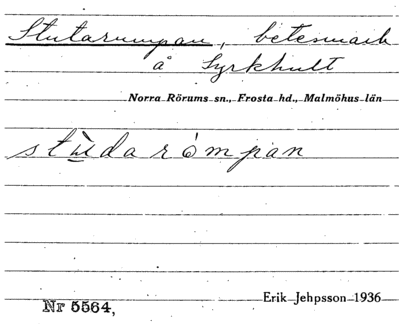 Stutarumpan, betesmark
å Syrkhult
Norra Rörums sn., Frosta hd., Malmöhus län
stùdarómpan
Erik Jehpsson 1936
Nr 5564,